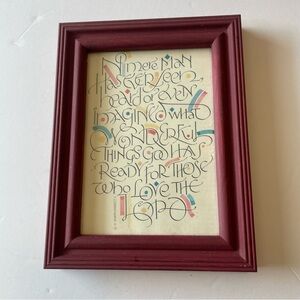 No mere man
has ever seen,
heard or even
imagined what
wonderful
things God has
ready for those
who love the
Lord